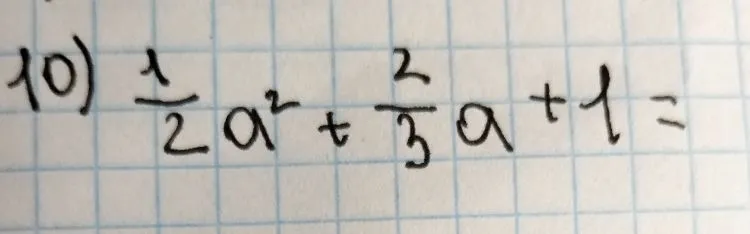 10) \frac{1}{2}a² + \frac{2}{3}a + 1 =